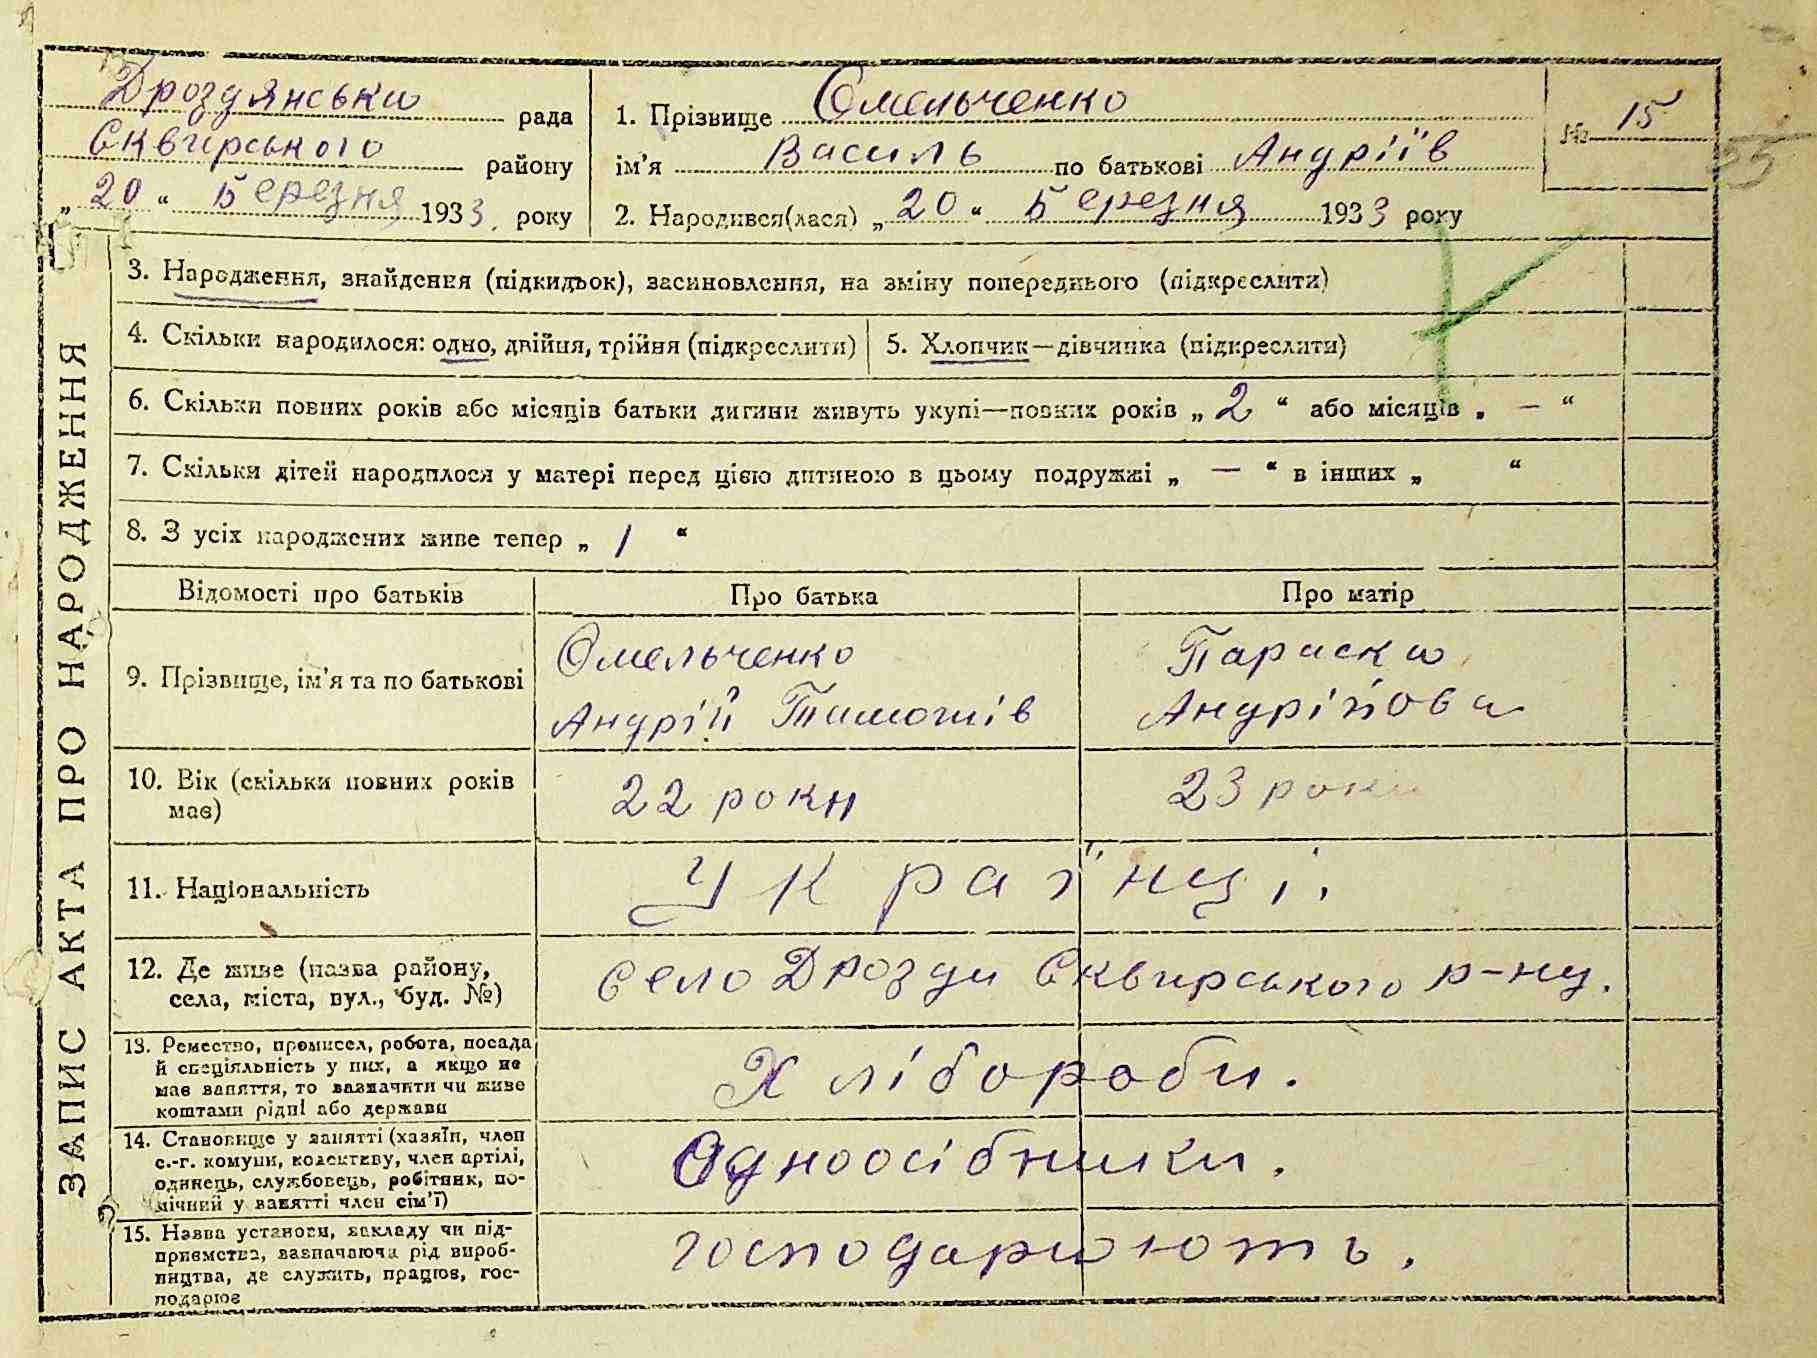 Дроздянська рада
Сквирського району
„ 20 “ Березня 1933 року
1. Прізвище Омельченко
ім’я Василь по батькові Андріїв
2. Народився(лася) „ 20 “ Березня 1933 року
№ 15
55
ЗАПИС АКТА ПРО НАРОДЖЕННЯ
3. Народження, знайдення (підкидьок), засиновлення, на зміну попереднього (підкреслити)
4. Скільки народилося: одно, двійня, трійня (підкреслити)
5. Хлопчик—дівчинка (підкреслити)
6. Скільки повних років або місяців батьки дитини живуть укупі—повних років „ 2 “ або місяців „ — “
7. Скільки дітей народилося у матері перед цією дитиною в цьому подружжі „ — “ в інших „ “
8. З усіх народжених живе тепер „ 1 “
Відомості про батьків
Про батька
Про матір
9. Прізвище, ім’я та по батькові
Омельченко
Андрій Тимошів
Параска
Андрійова
10. Вік (скільки повних років
має)
22 роки
23 роки
11. Національність
Українці.
12. Де живе (назва району,
села, міста, вул., буд. №)
Село Дрозди Сквирського р-ну.
13. Ремество, промисел, робота, посада
й спеціяльність у них, а якщо не
має заняття, то зазначити чи живе
коштами рідні або держави
Хлібороби.
14. Становище у занятті (хазяїн, член
с.-г. комуни, колективу, член артілі,
одинець, службовець, робітник, по-
мічний у занятті член сім’ї)
Одноосібники.
15. Назва установи, закладу чи під-
приємства, зазначаючи рід вироб-
ництва, де служить, працює, гос-
подарює
господарюють.